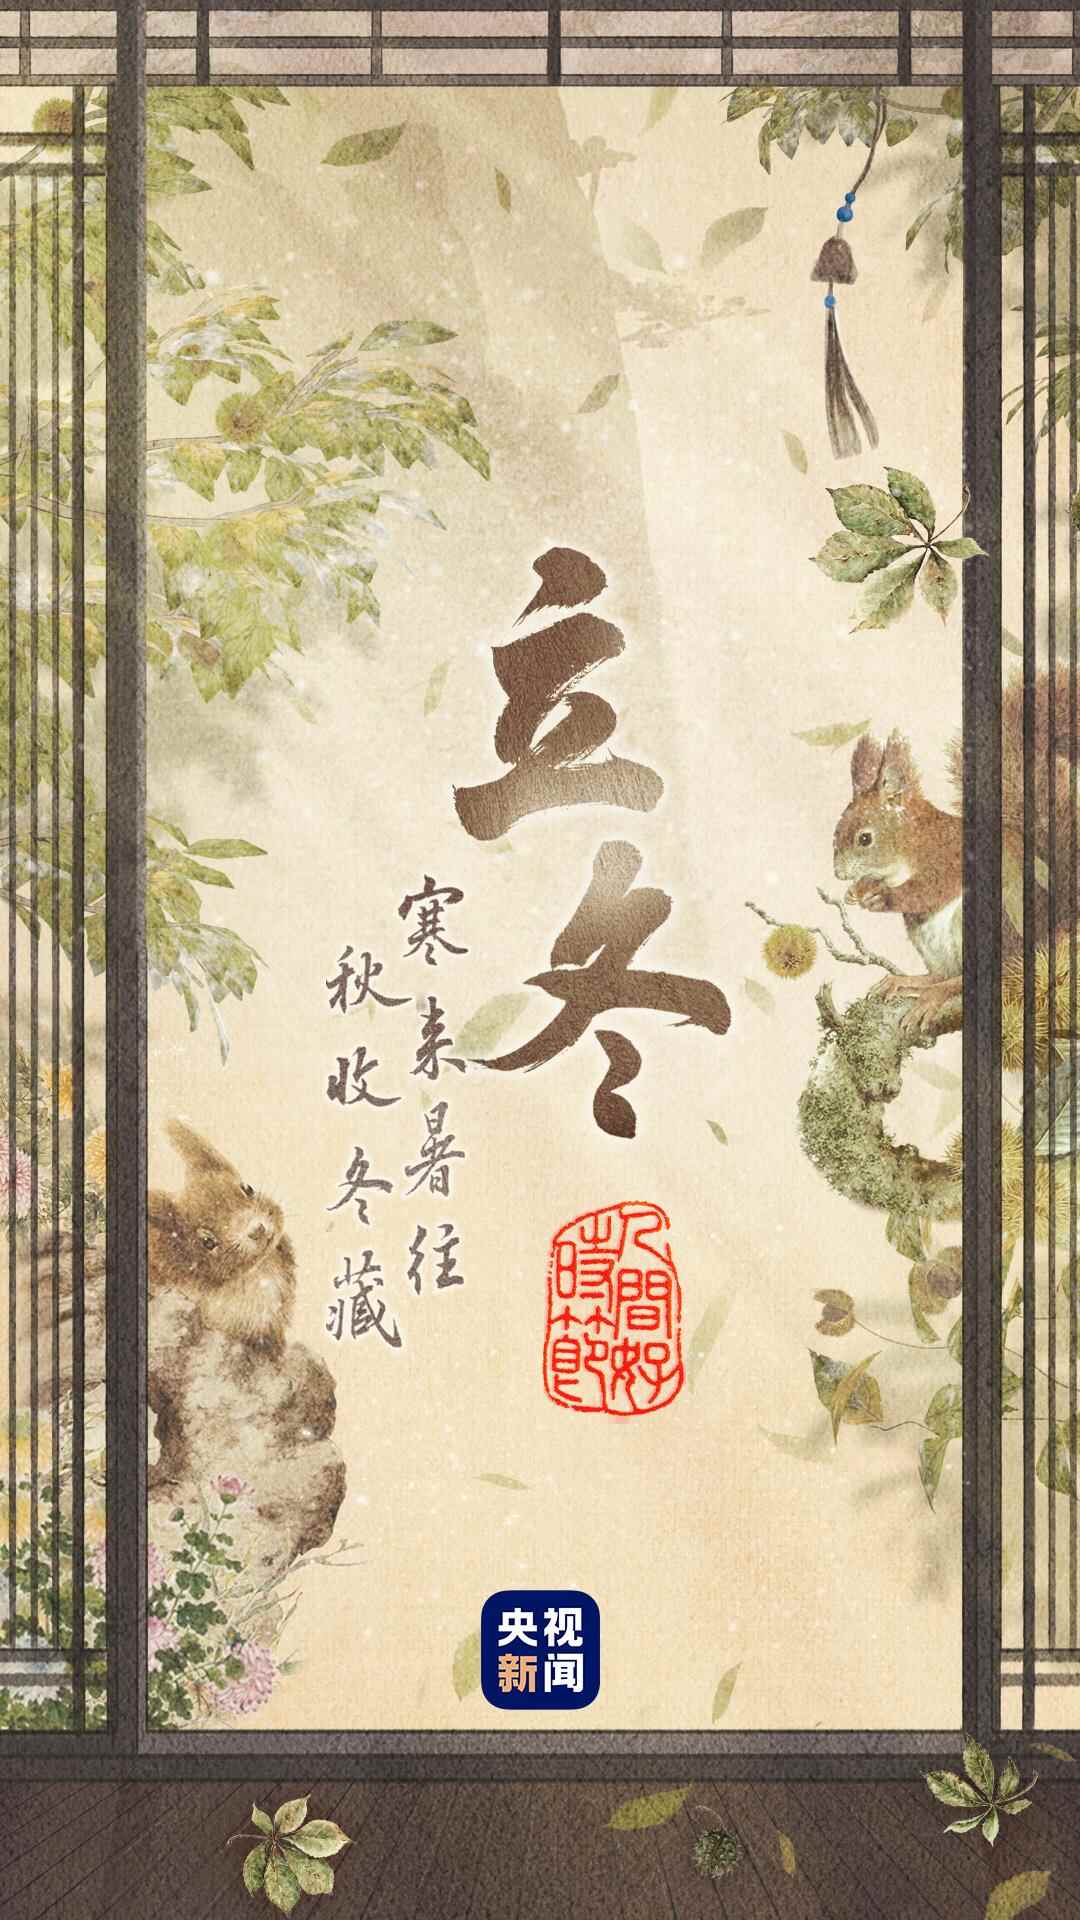 立冬
寒来暑往
秋收冬藏
人間好時節
央视
新闻